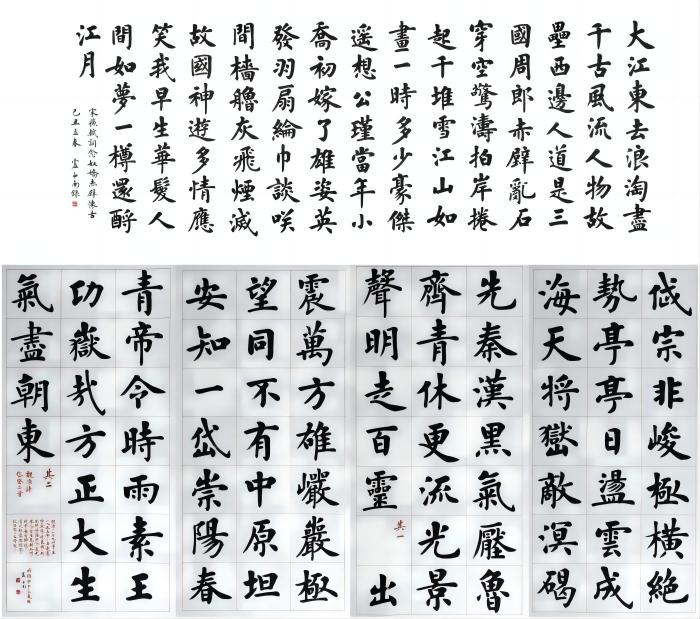 大江東去浪淘盡
千古風流人物故
壘西邊人道是三
國周郎赤壁亂石
穿空驚濤拍岸捲
起千堆雪江山如
畫一時多少豪傑
遥想公瑾當年小
喬初嫁了雄姿英
發羽扇綸巾談咲
間檣艫灰飛煙滅
故國神遊多情應
笑我早生華髮人
間如夢一樽還酹
江月
宋蘇軾詞念奴嬌赤壁懷古
己丑立春 盧中南錄
岱宗非峻極橫絶
勢亭亭日盪雲成
海天將嶽敵溟碣
先秦漢黑氣壓魯
齊青休更流光景
聲明走百靈
其一
出
震萬方雄巖嚴極
望同不有中原坦
安知一岱崇陽春
青帝令時雨素王
功嶽哉方正大生
氣盡朝東
其二
魏源詩
岱嶽二首